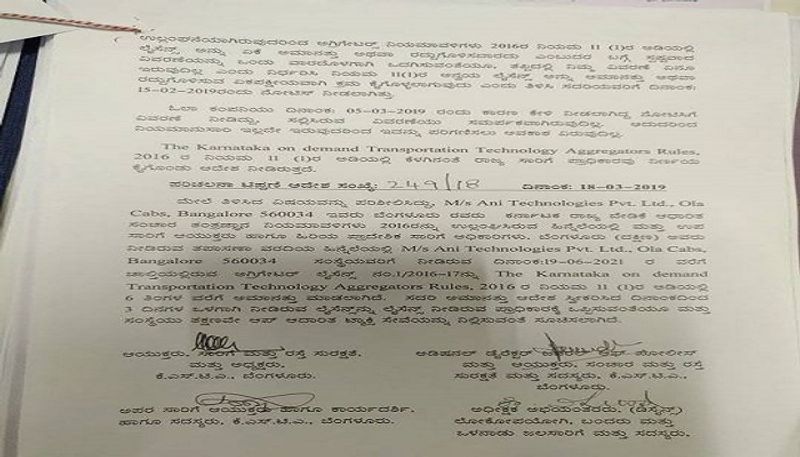 ಉಲ್ಲಂಘನೆಯಾಗಿರುವುದರಿಂದ ಅಗ್ರಿಗೇಟರ್ ನಿಯಮಾವಳಿಗಳು 2016ರ ನಿಯಮ 11 (1)ರ ಅಡಿಯಲ್ಲಿ
ಲೈಸೆನ್ಸ್ ಅನ್ನು ಏಕೆ ಅಮಾನತ್ತು ಅಥವಾ ರದ್ದುಗೊಳಿಸಬಾರದು ಎಂಬುದರ ಬಗ್ಗೆ ಸ್ಪಷ್ಟವಾದ
ವಿವರಣೆಯನ್ನು ಒಂದು ವಾರದೊಳಗಾಗಿ ಒದಗಿಸುವಂತೆಯೂ, ತಪ್ಪಿದಲ್ಲಿ ನಿಮ್ಮ ವಿವರಣೆ ಏನೂ
ಇರುವುದಿಲ್ಲ ಎಂದು ನಿರ್ಧರಿಸಿ ನಿಯಮ 11(1)ರ ಅನ್ವಯ ಲೈಸೆನ್ಸ್ ಅನ್ನು ಅಮಾನತು ಅಥವಾ
ರದ್ದುಗೊಳಿಸುವ ಏಕಪಕ್ಷೀಯವಾಗಿ ಕ್ರಮ ಕೈಗೊಳ್ಳಲಾಗುವುದು ಎಂದು ತಿಳಿಸಿ ಸದರಿಯವರಿಗೆ ದಿನಾಂಕ:
15-02-2019ರಂದು ನೋಟಿಸ್ ನೀಡಲಾಗಿತ್ತು.
ಓಲಾ ಕಂಪನಿಯು ದಿನಾಂಕ: 05-03-2019 ರಂದು ಕಾರಣ ಕೇಳಿ ನೀಡಲಾಗಿದ್ದ ನೋಟಿಸಿಗೆ
ವಿವರಣೆ ನೀಡಿದ್ದು, ಸಲ್ಲಿಸಿರುವ ವಿವರಣೆಯು ಸಮರ್ಪಕವಾಗಿರುವುದಿಲ್ಲ. ಆದುದರಿಂದ
ನಿಯಮಾನುಸಾರಿ ಇಲ್ಲದೇ ಇರುವುದರಿಂದ ಇದನ್ನು ಪರಿಗಣಿಸಲು ಅವಕಾಶ ಇರುವುದಿಲ್ಲ.
The Karnataka on demand Transportation Technology Aggregators Rules,
2016 ರ ನಿಯಮ 11 (1)ರ ಅಡಿಯಲ್ಲಿ ಕೆಳಗಿನಂತೆ ರಾಜ್ಯ ಸಾರಿಗೆ ಪ್ರಾಧಿಕಾರವು ನಿರ್ಣಯ
ಕೈಗೊಂಡು ಆದೇಶ ನೀಡಿರುತ್ತದೆ.
ಪರಿಚಲನಾ ಟಿಪ್ಪಣಿ ಆದೇಶ ಸಂಖ್ಯೆ: 249/18 ದಿನಾಂಕ: 18-03-2019
ಮೇಲೆ ತಿಳಿಸಿದ ವಿಷಯವನ್ನು ಪರಿಶೀಲಿಸಿದ್ದು, M/s Ani Technologies Pvt. Ltd., Ola
Cabs, Bangalore 560034 ಇವರು ಬೆಂಗಳೂರು ರವರು ಕರ್ನಾಟಕ ರಾಜ್ಯ ಬೇಡಿಕೆ ಆಧಾರಿತ
ಸಂಚಾರ ತಂತ್ರಜ್ಞಾನ ನಿಯಮಾವಳಿಗಳು 2016ರನ್ನು ಉಲ್ಲಂಘಿಸಿರುವ ಹಿನ್ನೆಲೆಯಲ್ಲಿ ಮತ್ತು ಉಪ
ಸಾರಿಗೆ ಆಯುಕ್ತರು ಹಾಗೂ ಹಿರಿಯ ಪ್ರಾದೇಶಿಕ ಸಾರಿಗೆ ಅಧಿಕಾರಿಗಳು, ಬೆಂಗಳೂರು (ದಕ್ಷಿಣ) ಅವರು
ನೀಡಿರುವ ತಪಾಸಣಾ ವರದಿಯ ಹಿನ್ನೆಲೆಯಲ್ಲಿ M/s Ani Technologies Pvt. Ltd., Ola Cabs,
Bangalore 560034 ಸಂಸ್ಥೆಯವರಿಗೆ ನೀಡಿರುವ ದಿನಾಂಕ:19-06-2021 ರ ವರೆಗೆ
ಚಾಲ್ತಿಯಲ್ಲಿರುವ ಅಗ್ರಿಗೇಟರ್ ಲೈಸೆನ್ಸ್ ನಂ.1/2016-17ನ್ನು The Karnataka on demand
Transportation Technology Aggregators Rules, 2016 ರ ನಿಯಮ 11 (1)ರ ಅಡಿಯಲ್ಲಿ
6 ತಿಂಗಳ ವರೆಗೆ ಅಮಾನತ್ತು ಮಾಡಲಾಗಿದೆ. ಸದರಿ ಅಮಾನತ್ತು ಆದೇಶ ಸ್ವೀಕರಿಸಿದ ದಿನಾಂಕದಿಂದ
3 ದಿನಗಳ ಒಳಗಾಗಿ ನೀಡಿರುವ ಲೈಸೆನ್ಸ್‌ನ್ನು ಲೈಸೆನ್ಸ್ ನೀಡಿರುವ ಪ್ರಾಧಿಕಾರಕ್ಕೆ ಒಪ್ಪಿಸುವಂತೆಯೂ ಮತ್ತು
ಸಂಸ್ಥೆಯು ತಕ್ಷಣವೇ ಆಪ್ ಆಧಾರಿತ ಟ್ಯಾಕ್ಸಿ ಸೇವೆಯನ್ನು ನಿಲ್ಲಿಸುವಂತೆ ಸೂಚಿಸಲಾಗಿದೆ.
ಆಯುಕ್ತರು, ಸಾರಿಗೆ ಮತ್ತು ರಸ್ತೆ ಸುರಕ್ಷತೆ,
ಮತ್ತು ಅಧ್ಯಕ್ಷರು,
ಕೆ.ಎಸ್.ಟಿ.ಎ., ಬೆಂಗಳೂರು.
ಅಡಿಷನಲ್ ಡೈರೆಕ್ಟರ್ ಆಫ್ ಪೋಲೀಸ್
ಮತ್ತು ಆಯುಕ್ತರು, ಸಂಚಾರ ಮತ್ತು ರಸ್ತೆ
ಸುರಕ್ಷತೆ ಮತ್ತು ಸದಸ್ಯರು, ಕೆ.ಎಸ್.ಟಿ.ಎ.,
ಬೆಂಗಳೂರು.
ಅಪರ ಸಾರಿಗೆ ಆಯುಕ್ತರು ಹಾಗೂ ಕಾರ್ಯದರ್ಶಿ,
ಹಾಗೂ ಸದಸ್ಯರು, ಕೆ.ಎಸ್.ಟಿ.ಎ., ಬೆಂಗಳೂರು.
ಅಧೀಕ್ಷಕ ಅಭಿಯಂತರರು, (ಡಿಸೈನ್ಸ್)
ಲೋಕೋಪಯೋಗಿ, ಬಂದರು ಮತ್ತು
ಒಳನಾಡು ಜಲಸಾರಿಗೆ ಮತ್ತು ಸದಸ್ಯರು,